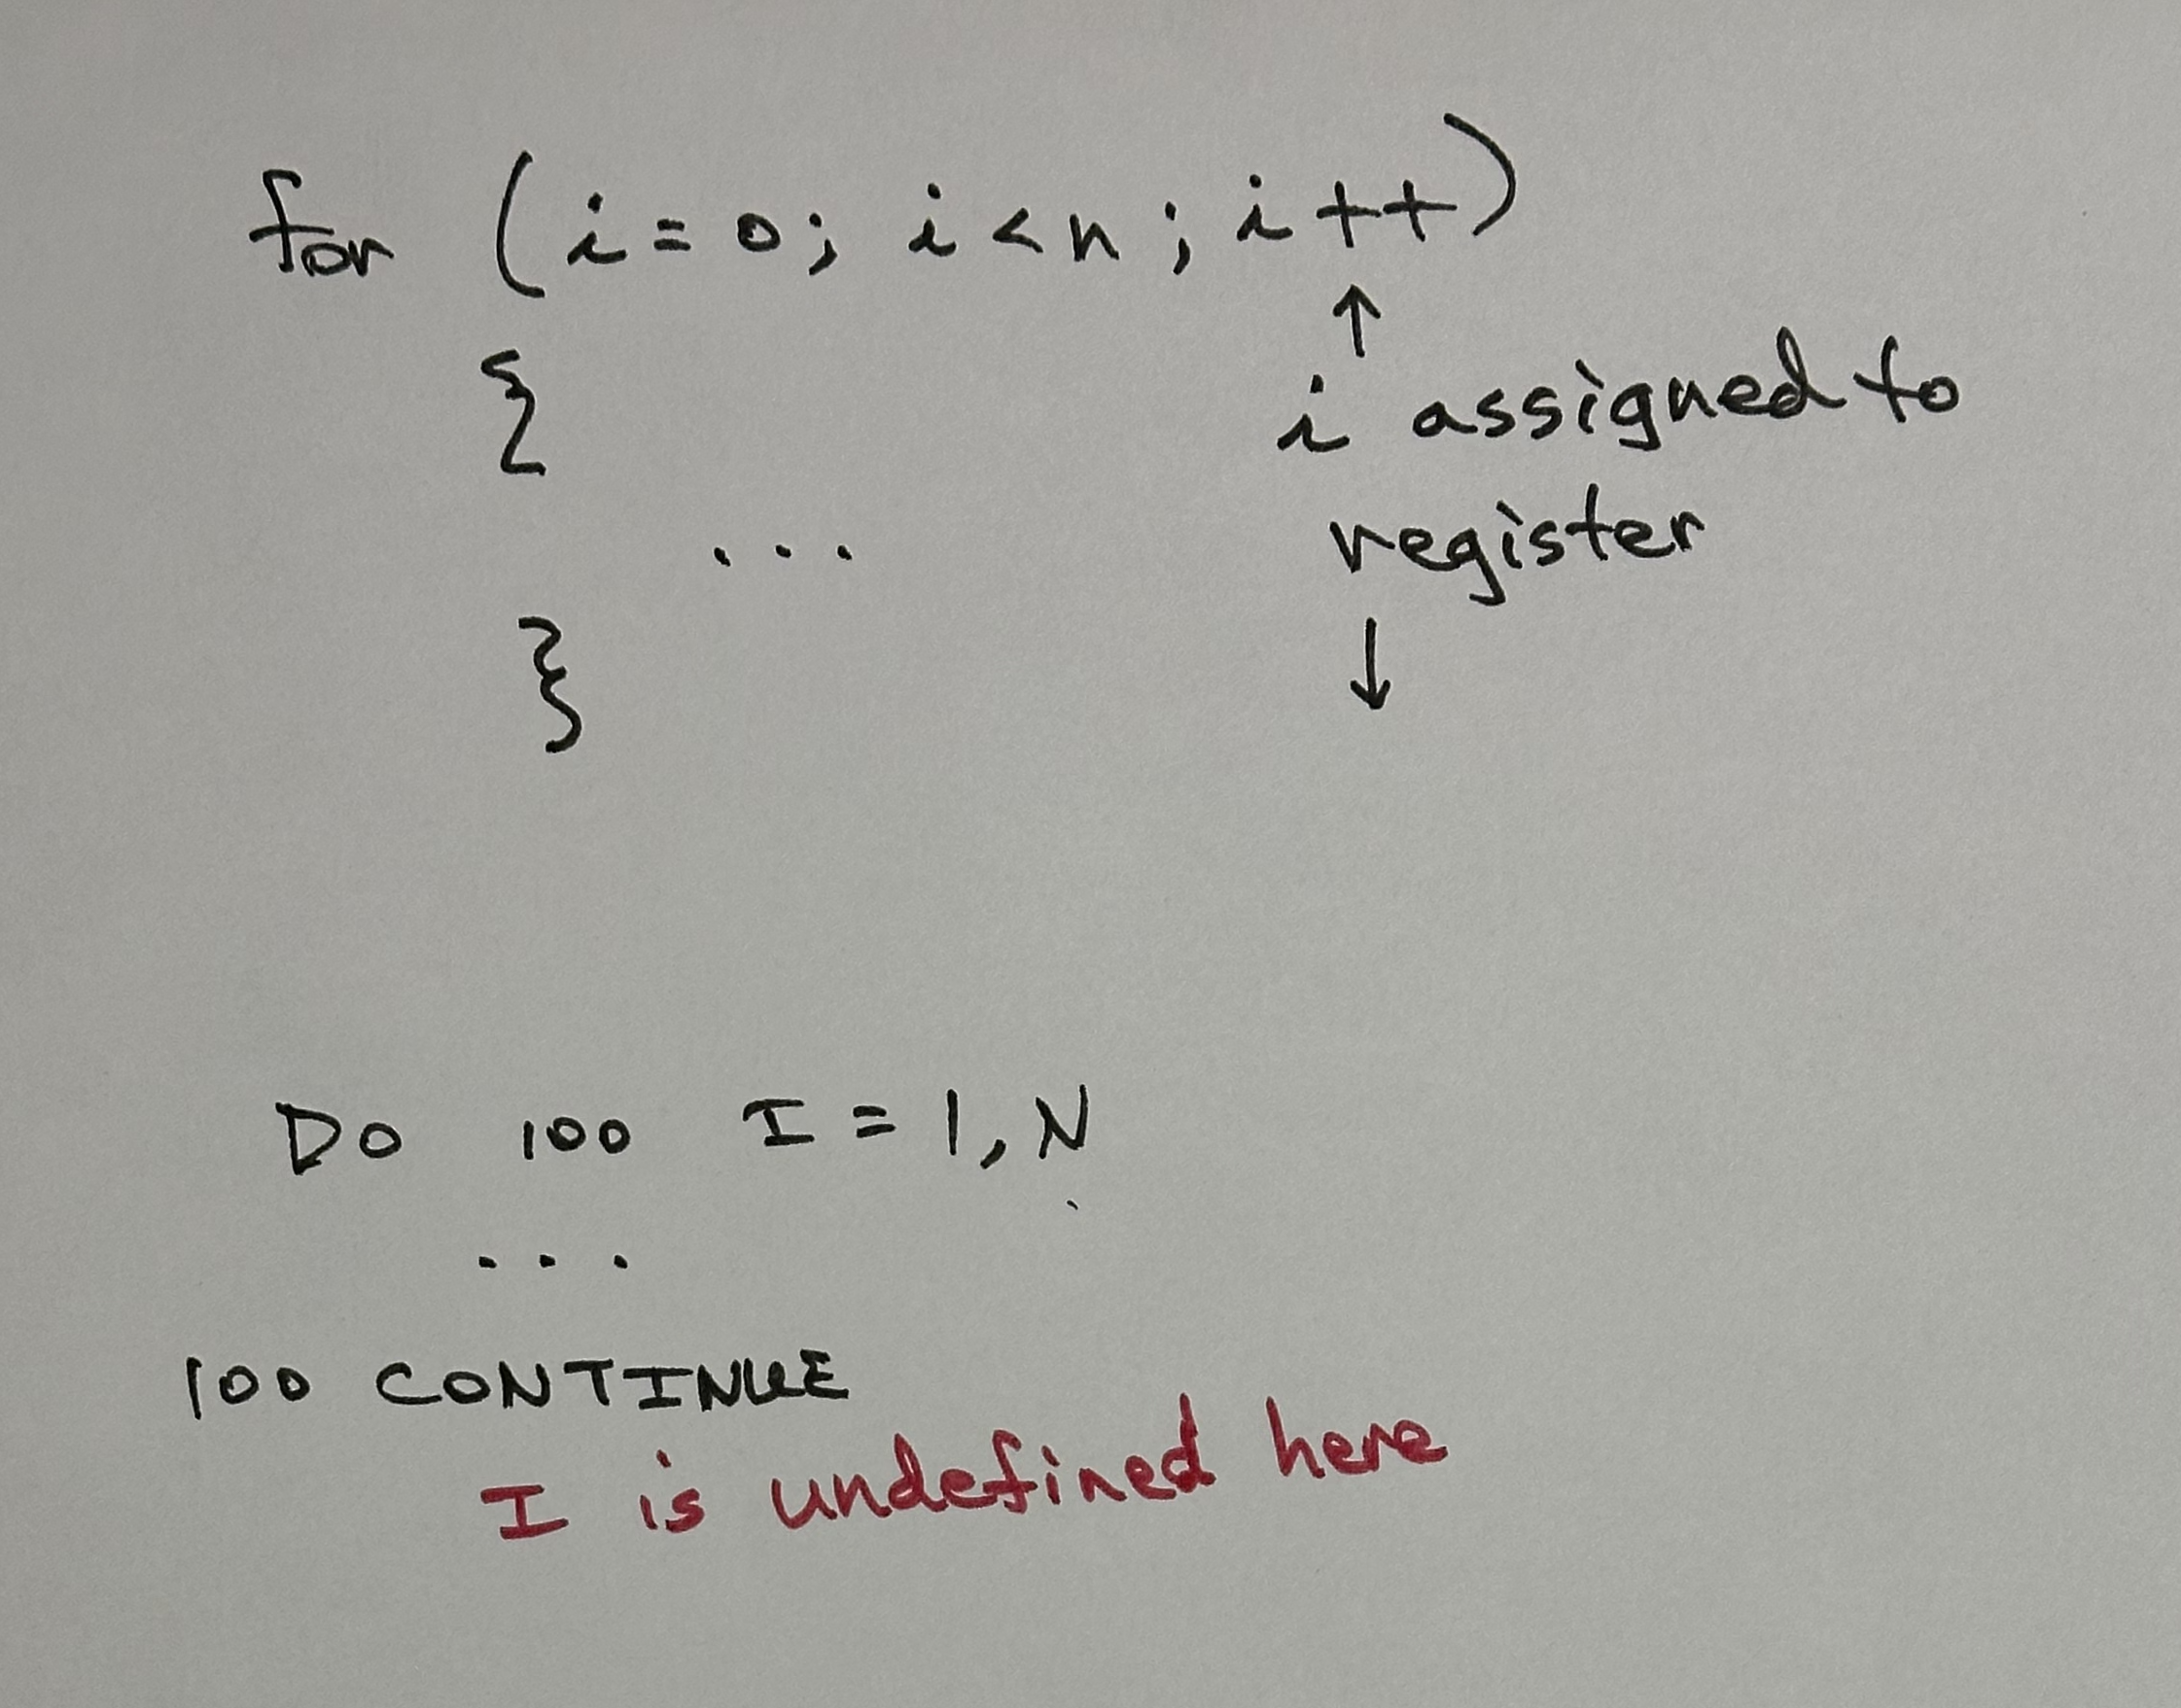 for (i=0; i<n; i++)
{
↑
i assigned to
register
↓
...
}
DO 100 I = 1, N
...
100 CONTINUE
I is undefined here